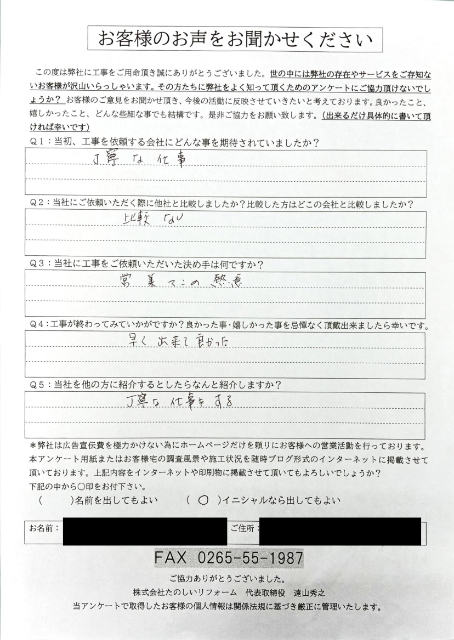 お客様のお声をお聞かせください
この度は弊社に工事をご用命頂き誠にありがとうございました。世の中には弊社の存在やサービスをご存知ない
お客様が沢山いらっしゃいます。その方たちに弊社をよく知って頂くためのアンケートにご協力頂けないでし
ょうか？ お客様のご意見をお聞かせ頂き、今後の活動に反映させていきたいと考えております。良かったこと、
嬉しかったこと、どんな些細な事でも結構です。是非ご協力をお願い致します。（出来るだけ具体的に書いて頂
ければ幸いです）
Q１：当初、工事を依頼する会社にどんな事を期待されていましたか？
丁寧な仕事
Q２：当社にご依頼いただく際に他社と比較しましたか？比較した方はどこの会社と比較しましたか？
比較ない
Q３：当社に工事をご依頼いただいた決め手は何ですか？
営業マンの熱意
Q４：工事が終わってみていかがですか？良かった事・嬉しかった事を忌憚なく頂戴出来ましたら幸いです。
早く出来て良かった
Q５：当社を他の方に紹介するとしたらなんと紹介しますか？
丁寧な仕事をする
＊弊社は広告宣伝費を極力かけない為にホームページだけを頼りにお客様への営業活動を行っております。
本アンケート用紙またはお客様宅の調査風景や施工状況を随時ブログ形式のインターネットに掲載させて
頂いております。上記内容をインターネットや印刷物に掲載させて頂いてもよろしいでしょうか？
下記の中から○印をお付下さい。
（　　）名前を出してもよい　　（ ○ ）イニシャルなら出してもよい
お名前：　　ご住所：
FAX 0265-55-1987
ご協力ありがとうございました。
株式会社たのしいリフォーム　代表取締役　遠山秀之
当アンケートで取得したお客様の個人情報は関係法規に基づき厳正に管理いたします。